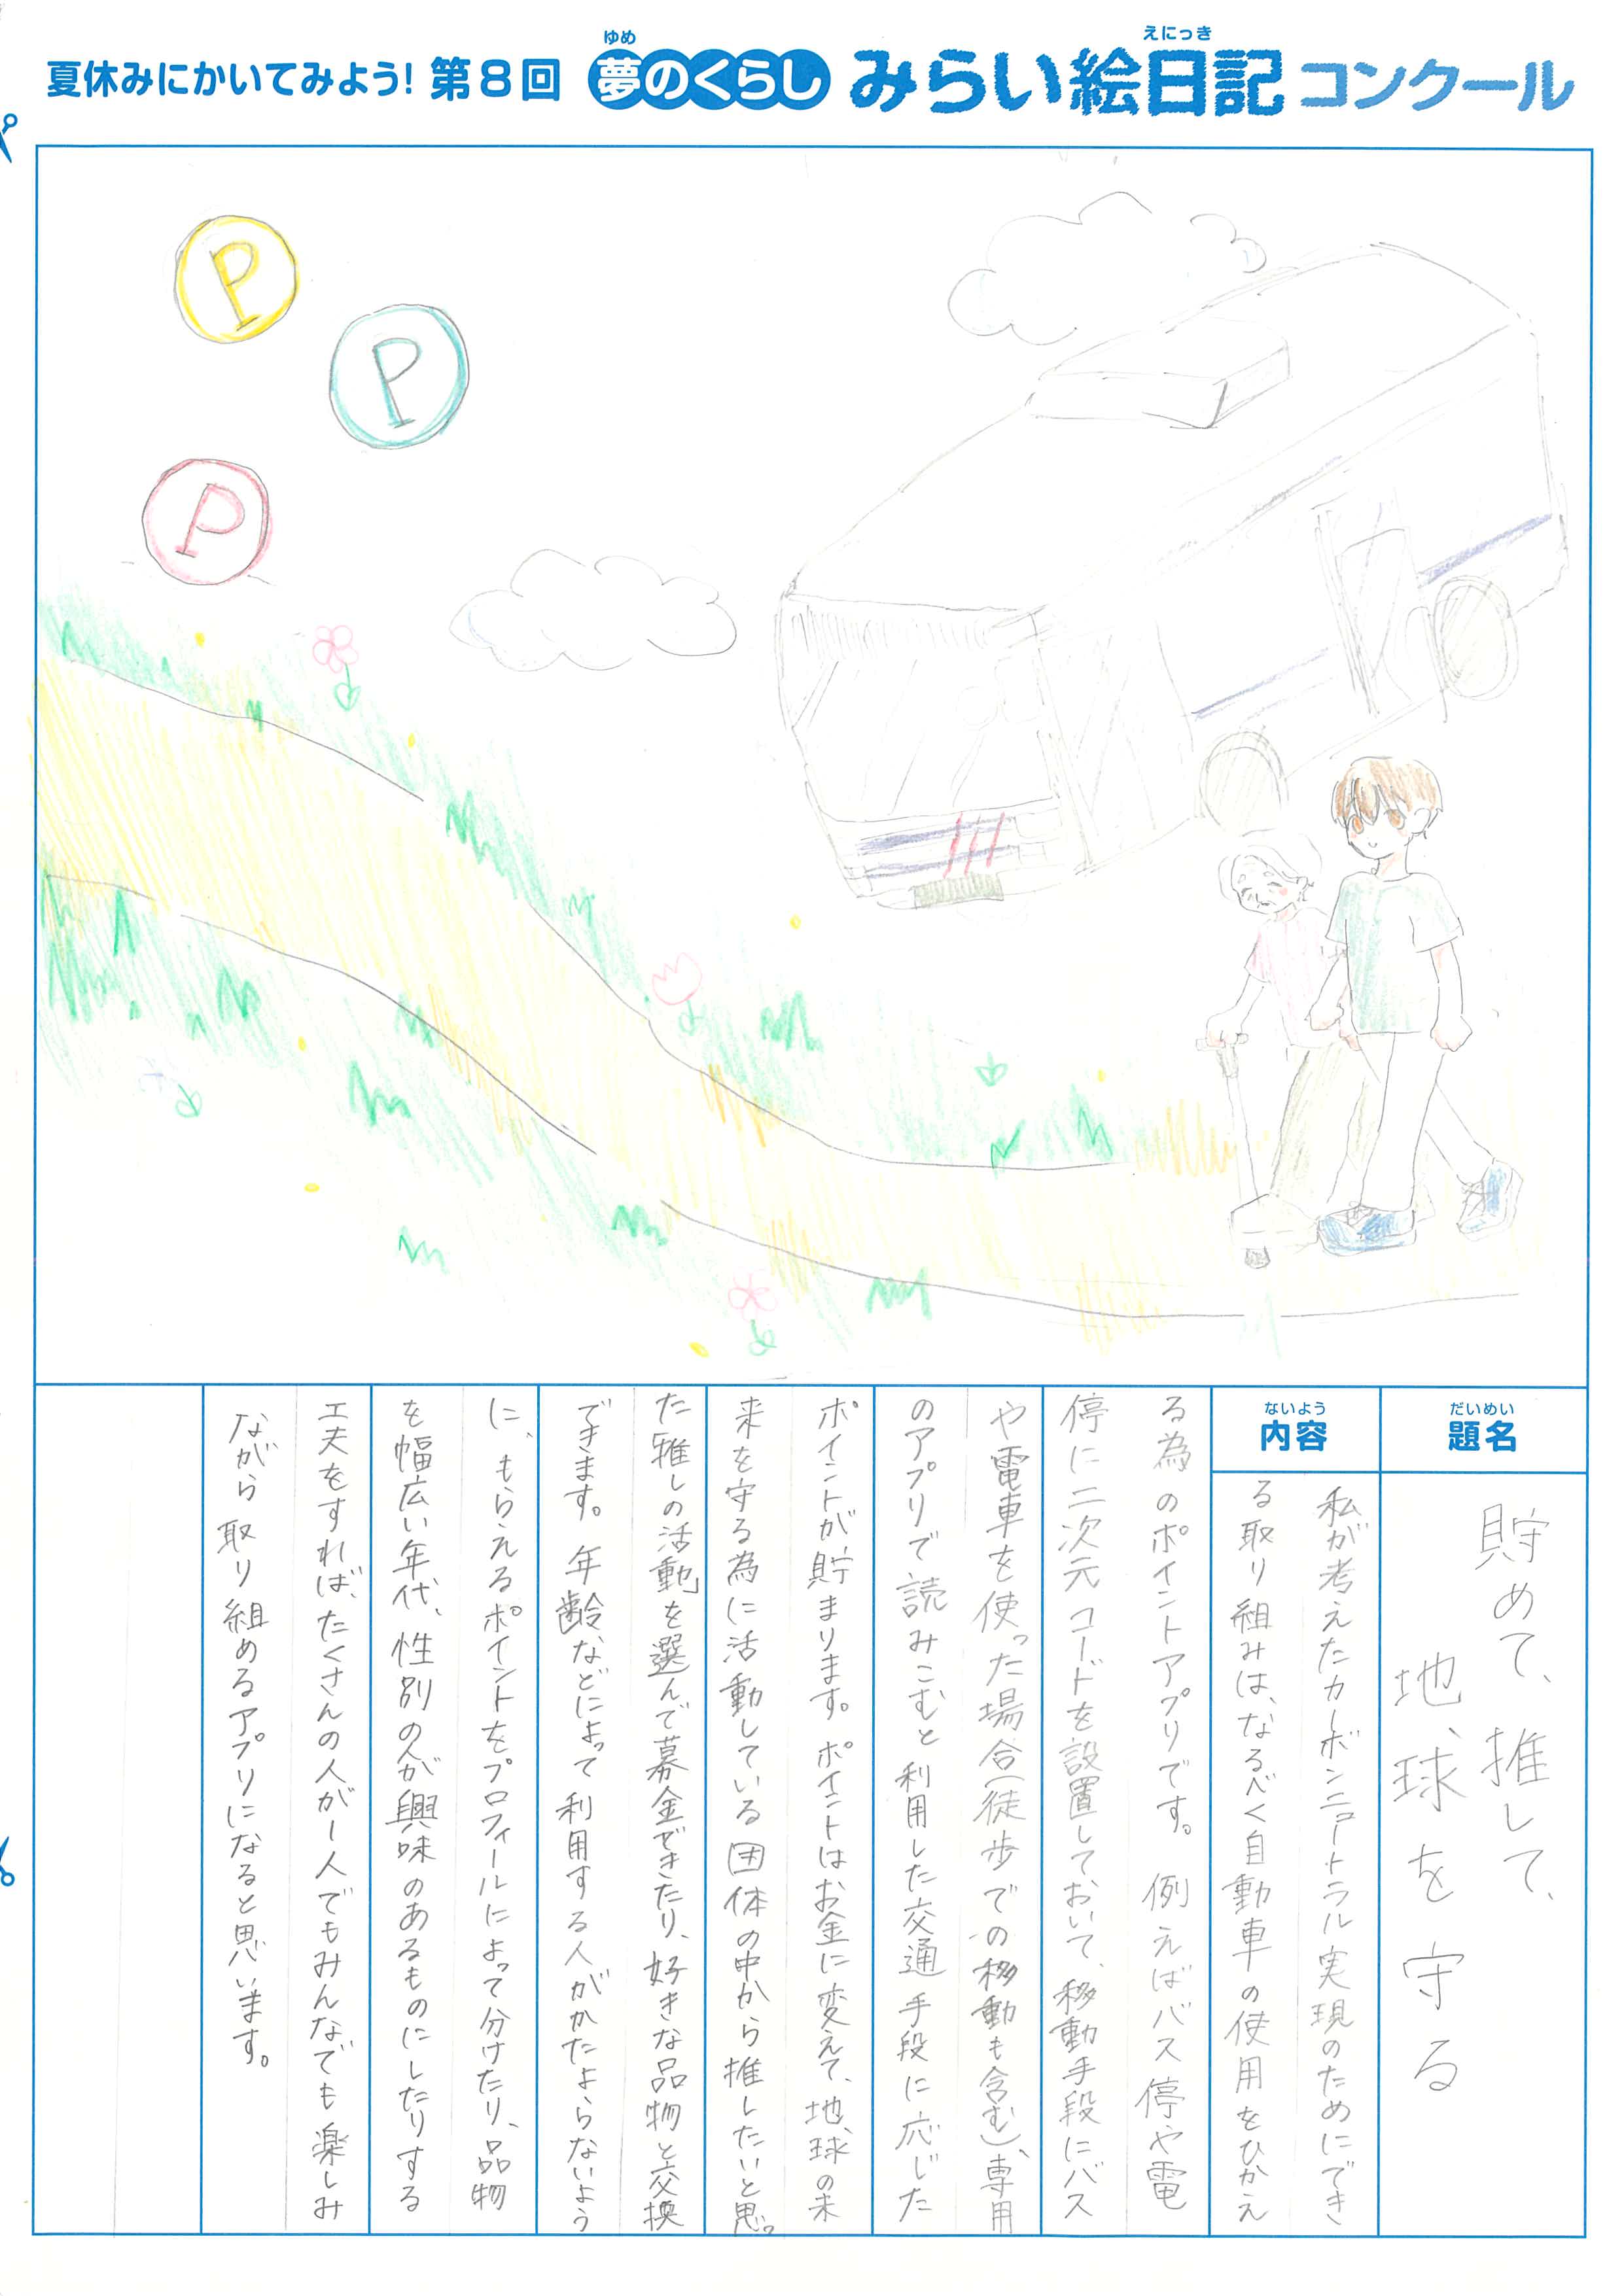 夏休みにかいてみよう! 第8回 夢のくらし みらい絵日記 コンクール
ゆめ
えにっき
P
P
P
だいめい
題名
貯めて、推して、
地球を守る
ないよう
内容
私が考えたカーボンニュートラル実現のためにでき
る取り組みは、なるべく自動車の使用をひかえ
る為のポイントアプリです。例えばバス停や電
停に二次元コードを設置しておいて、移動手段にバス
や電車を使った場合(徒歩での移動も含む)、専用
のアプリで読みこむと利用した交通手段に応じた
ポイントが貯まります。ポイントはお金に変えて、地球の未
来を守る為に活動している団体の中から推したいと思っ
た推しの活動を選んで募金できたり、好きな品物と交換
できます。年齢などによって利用する人がかたよらないよう
に、もらえるポイントをプロフィールによって分けたり、品物
を幅広い年代、性別の人が興味のあるものにしたりする
工夫をすれば、たくさんの人が一人でもみんなでも楽しみ
ながら取り組めるアプリになると思います。